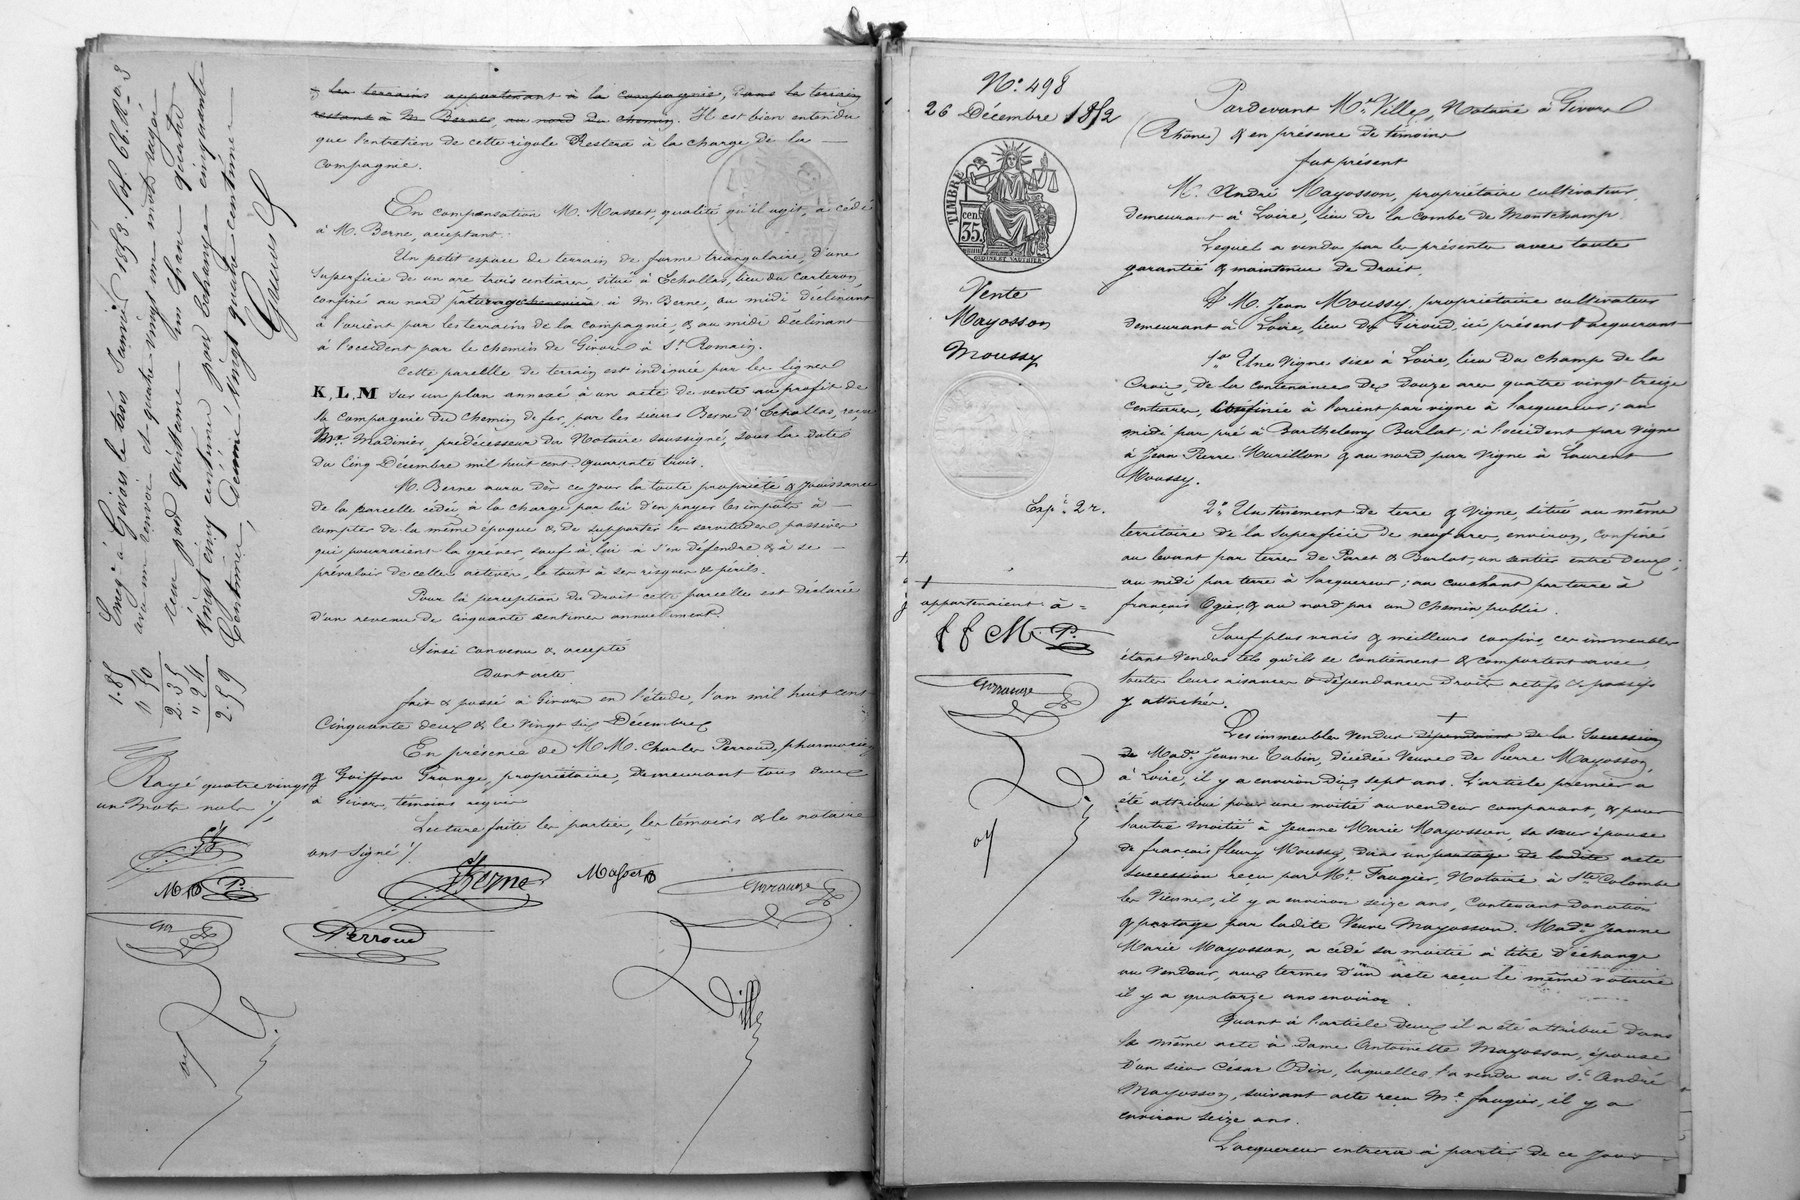 les terrains appartenant à la compagnie, dans le terrain
restant à M. Berne, au nord du chemin. Il est bien entendu
que l'entretien de cette rigole restera à la charge de la
compagnie.
En compensation M. Masset, qualité qu'il agit, a cédé
à M. Berne, acceptant:
Un petit espace de terrain de forme triangulaire, d'une
superficie de un are trois centiares situé à Echallas, lieu du
confiné au nord à M. Berne, au midi déclinant
à l'orient par les terrains de la compagnie, & au midi déclinant
à l'occident par le chemin de Givors à St. Romain.
Cette parcelle de terrain est indiquée par les lignes
K, L, M sur un plan annexé à un acte de vente au profit de
la compagnie du chemin de fer, par les sieurs Berne d'Echallas, reçu
Me. Madinier, prédécesseur du Notaire soussigné, sous la date
du cinq Décembre mil huit cent quarante trois.
M. Berne aura dès ce jour la toute propriété & jouissance
de la parcelle cédée à la charge par lui d'en payer les impôts à
compter de la même époque & de supporter les servitudes passives
qui pourraient la grever, sauf à lui à s'en défendre & à se
prévaloir de celles actives, le tout à ses risques & périls.
Pour la perception du droit cette parcelle est déclarée
d'un revenu de cinquante centimes annuellement.
Ainsi convenu & accepté
Dont acte
fait & passé à Givors en l'étude, l'an mil huit cent
cinquante deux & le vingt six Décembre
En présence de M.M. Charles Perroud, pharmacien
& Goiffon Grange, propriétaire, demeurant tous deux
à Givors, témoins requis
Lecture faite les parties, les témoins & le notaire
ont signé ./.
Berne
Masset
Perroud
Ville
Enregé à Givors le trois Janvier 1853. fol. 66. Ro.
avec un renvoi et quatre vingt un mots rayés
pour quittance un franc quatre
vingt cinq centimes pour Echange cinquante
Centimes, Décime vingt quatre centimes
1.85
" 50
2.35
" 24
2.59
Rayé quatre vingt
un mots nuls ./.
No. 498
26 Décembre 1852
TIMBRE
35 cen.
Vente
Mayosson
Moussy
Expé. 2 r.
appartenaient à =
Pardevant Me. Ville, Notaire à Givors
(Rhône) & en présence de témoins
fut présent
M. André Mayosson, propriétaire cultivateur,
demeurant à Loire, lieu de la Combe de Montchamp
Lequel a vendu par les présentes avec toute
garantie & maintenue de Droit,
à M. Jean Moussy, propriétaire cultivateur
demeurant à Loire, lieu du Giroud, ici présent & acquérant
1o. Une Vigne sise à Loire, lieu du champ de la
Croix, de la contenance de douze ares quatre vingt treize
centiares, confinée à l'orient par vigne à l'acquéreur; au
midi par pré à Barthelemy Burlat; à l'occident par vigne
à Jean Pierre Murillon & au nord par vigne à Laurent
Moussy.
2o. Un tènement de terre & vigne, situé au même
territoire de la superficie de neuf ares, environ, confiné
au levant par terres de Paret & Burlat, un sentier entre deux;
au midi par terre à l'acquéreur; au couchant par terre à
françois Ogier, & au nord par un chemin public.
Sauf plus vrais & meilleurs confins, ces immeubles
étant vendus tels qu'ils se contiennent & comportent avec
toutes leurs aisances & dépendances Droits actifs & passifs
y attachés.
Les immeubles vendus dépendaient de la succession
de Made. Jeanne Tabin, décédée Veuve de Pierre Mayosson,
à Loire, il y a environ dix sept ans. L'article premier a
été attribué pour une moitié au vendeur comparant, & pour
l'autre moitié à Jeanne Marie Mayosson, sa sœur épouse
de françois fleury Moussy, dans un partage de ladite
succession reçu par Me. Faugier, Notaire à Ste Colombe
les Vienne, il y a environ seize ans, contenant donation
& partage par ladite Veuve Mayosson. Made. Jeanne
Marie Mayosson, a cédé sa moitié à titre d'échange
au Vendeur, aux termes d'un acte reçu le même notaire
il y a quatorze ans environ.
Quant à l'article deux il a été attribué dans
le même acte à dame Antoinette Mayosson, épouse
d'un sieur César Odin, laquelle l'a vendu au Sr. André
Mayosson, suivant acte reçu Me. faugier, il y a
environ seize ans.
L'acquéreur entrera à partir de ce jour